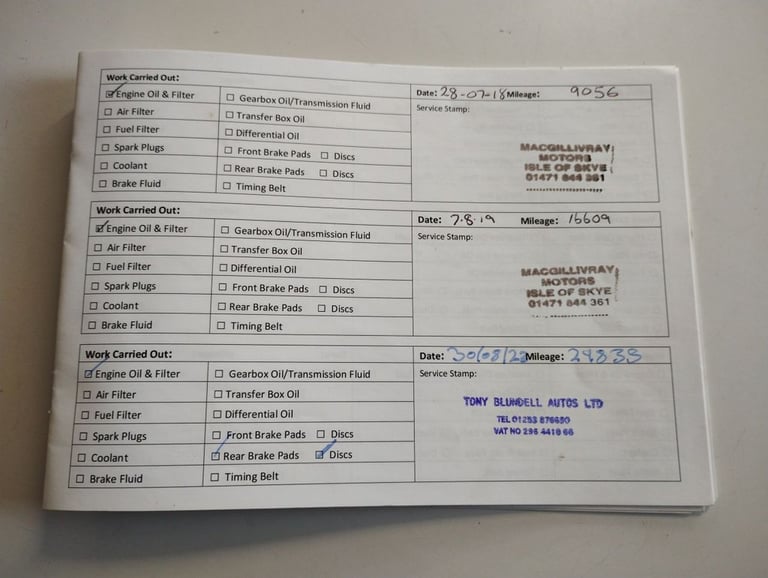 Work Carried Out:
☑ Engine Oil & Filter ☐ Gearbox Oil/Transmission Fluid
☐ Air Filter ☐ Transfer Box Oil
☐ Fuel Filter ☐ Differential Oil
☐ Spark Plugs ☐ Front Brake Pads ☐ Discs
☐ Coolant ☐ Rear Brake Pads ☐ Discs
☐ Brake Fluid ☐ Timing Belt
Date: 28-07-18 Mileage: 9056
Service Stamp:
MACGILLIVRAY
MOTORS
ISLE OF SKYE
01471 844 361
Work Carried Out:
☑ Engine Oil & Filter ☐ Gearbox Oil/Transmission Fluid
☐ Air Filter ☐ Transfer Box Oil
☐ Fuel Filter ☐ Differential Oil
☐ Spark Plugs ☐ Front Brake Pads ☐ Discs
☐ Coolant ☐ Rear Brake Pads ☐ Discs
☐ Brake Fluid ☐ Timing Belt
Date: 7.8.19 Mileage: 16609
Service Stamp:
MACGILLIVRAY
MOTORS
ISLE OF SKYE
01471 844 361
Work Carried Out:
☑ Engine Oil & Filter ☐ Gearbox Oil/Transmission Fluid
☐ Air Filter ☐ Transfer Box Oil
☐ Fuel Filter ☐ Differential Oil
☐ Spark Plugs ☐ Front Brake Pads ☐ Discs
☐ Coolant ☑ Rear Brake Pads ☑ Discs
☐ Brake Fluid ☐ Timing Belt
Date: Mileage:
Service Stamp:
TONY BLUNDELL AUTOS LTD
TEL 01253 876650
VAT NO 296 4418 66